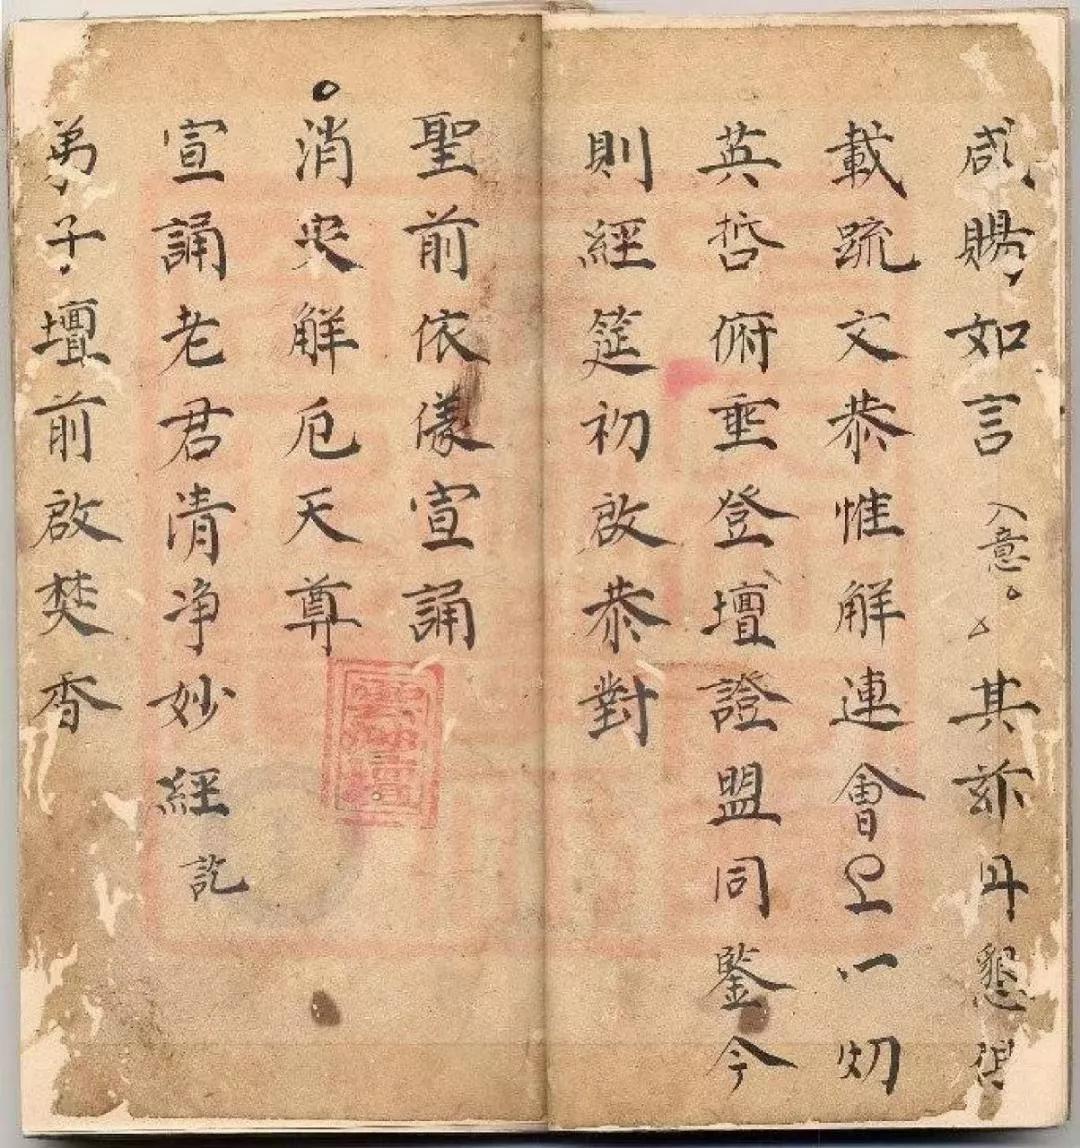 咸賜如言入意。其諒丹懇俱
載疏文恭惟解連會上一切
英哲俯垂登壇證盟同鑒今
則經筵初啟恭對
聖前依儀宣誦
消灾解厄天尊
宣誦老君清净妙經訖
弟子壇前啟焚香